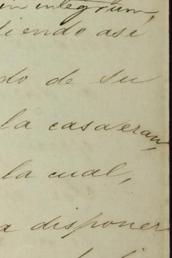 in integrum,
diendo asi
do de su
la casa eran,
la cual,
a disponer